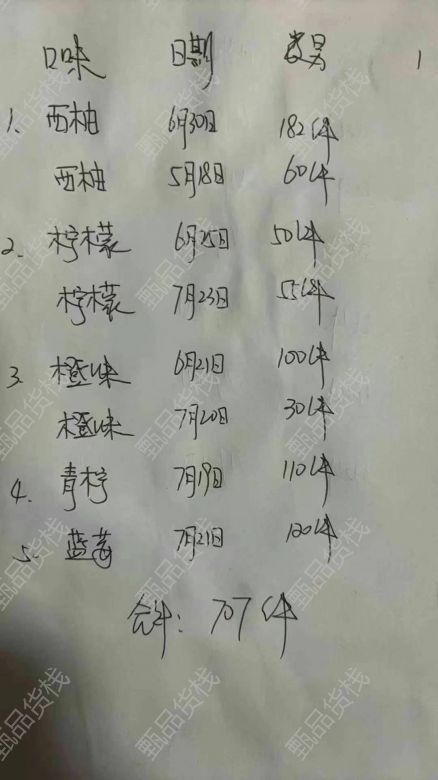 口味 日期 数另 1
1、西柚 6月30日 182件
西柚 5月18日 60件
2、柠檬 6月25日 50件
柠檬 7月23日 55件
3、橙味 6月21日 100件
橙味 7月20日 30件
4、青柠 7月19日 110件
5、蓝莓 7月21日 120件
合计：707件
甄品货栈